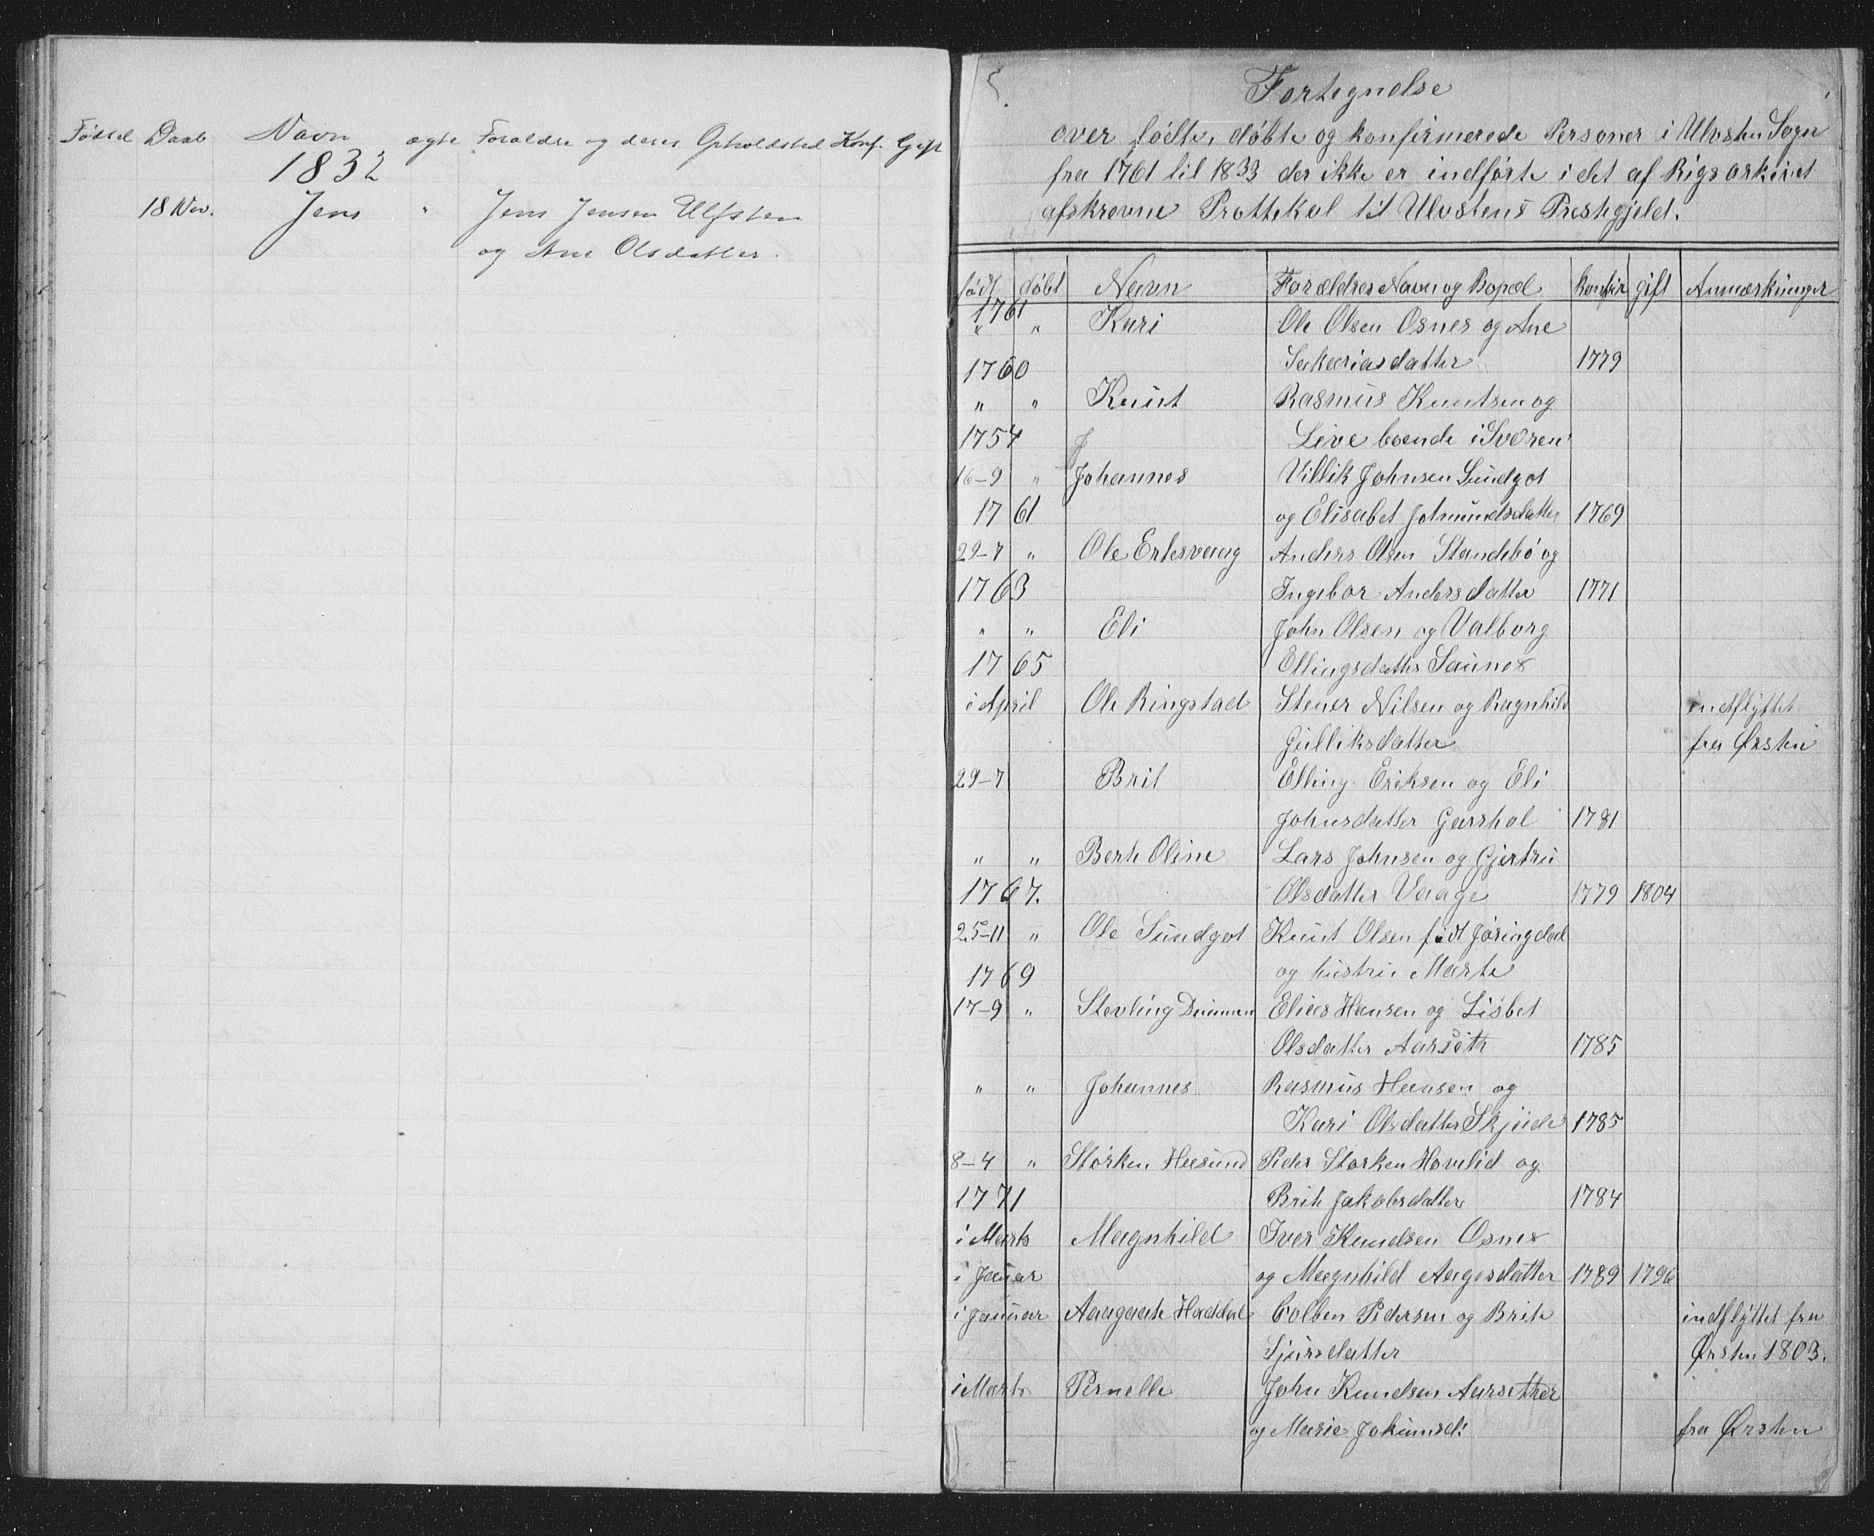 Fødsel Daab Navn ægte Foraldre og deres Opholdsted Konf. Gift
1832
18 Nov. Jens " Jens Jensen Ulfsten
og Ane Olsdatter.
Fortegnelse
over fødte, døbte og konfirmerede Personer i Ulvsten Sogn
fra 1761 til 1833 der ikke er indførte i det af Rigsarkivet
afskrevne Prottekol til Ulvstens Prestegjeld.
født døbt Navn Forældres Navn og Bopæl konfir gift Anmærkninger
1761
" " Kari Ole Olsen Osnes og Ane
1760 Sakariasdatter 1779
" " Knut Rasmus Knutsen og
1754 Live boende i Svoren
16-9 " Johannes Villik Johnsen Sundgot
1761 og Elisabet Jotmundsdatter 1769
29-7 " Ole Erksvaag Anders Olsen Standebø og
1763 Ingebor Andersdatter 1771
" " Eli John Olsen og Valborg
1765 Ellingsdatter Saunes
i April Ole Ringstad Stener Nilsen og Ragnhild indflyttet
Gulliksdatter fra Ørsten
29-7 Brit Elling Eriksen og Eli
Johnsdatter Garshol 1781
" " Berte Oline Lars Johnsen og Gjertru
1767. Olsdatter Vaage 1779 1804
25-11 " Ole Sundgot Knut Olsen født Jøringdal
1769 og hustru Marte
17-9 " Stevling Dimmen Elias Hansen og Lisbet
Olsdatter Aarseth 1785
" " Johannes Rasmus Hansen og
Kari Olsdatter Skjeide 1785
8-4 " Størken Hasund Peder Størken Hovlid og
1771 Brite Jakobsdatter 1784
i Marts Magnhild Iver Knudsen Osnes
i Januar og Magnhild Aagesdatter 1789 1796
i Januar Aaagaate Haddal Colben Pedersen og Brite indflyttet fra
Sjursdatter Ørsten 1803.
i Marts Pernelle John Knudsen Aarsether
og Marie Jokumsd: fra Ørsten